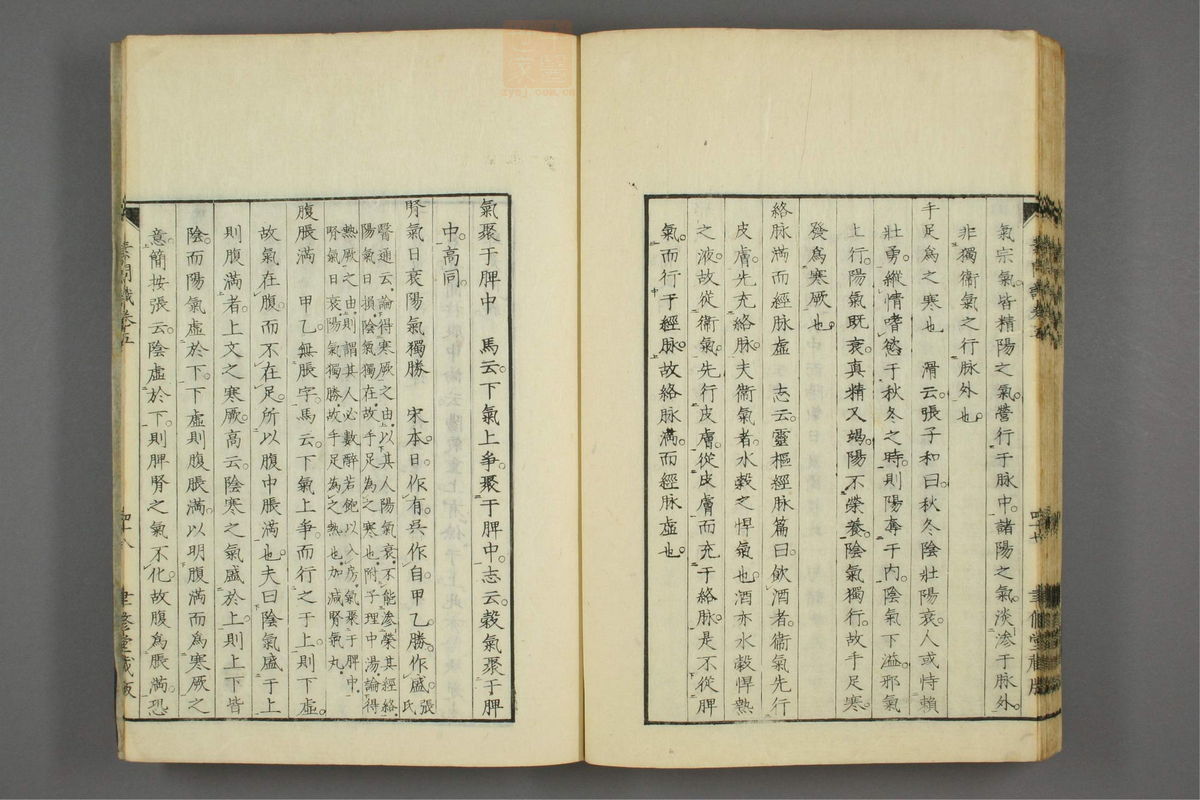 氣宗氣皆精陽之氣營行于脉中諸陽之氣淡滲于脉外
非獨衞氣之行脉外也
手足爲之寒也 滑云張子和曰秋冬陰壯陽衰人或恃賴
壯勇縱情嗜慾于秋冬之時則陽奪于内陰氣下溢邪氣
上行陽氣既衰真精又竭陽不榮養陰氣獨行故手足寒
發爲寒厥也
絡脉滿而經脉虛 志云靈樞經脉篇曰飲酒者衞氣先行
皮膚先充絡脉夫衞氣者水穀之悍氣也酒亦水穀悍熱
之液故從衞氣先行皮膚從皮膚而充于絡脉是不從脾
氣而行于經脉故絡脉滿而經脉虛也
氣聚于脾中 馬云下氣上爭聚于脾中志云穀氣聚于脾
中高同
腎氣日衰陽氣獨勝 宋本日作有吳作自甲乙勝作盛張氏
醫通云論得寒厥之由以其人陽氣衰不能滲榮其經絡
陽氣日損陰氣獨在故手足為之寒也附子理中湯論得
熱厥之由則謂其人必數醉若飽以入房氣聚于脾中
腎氣日衰陽氣獨勝故手足為之熱也加減腎氣丸
腹脹滿 甲乙無脹字馬云下氣上爭而行之于上則下虛
故氣在腹而不在足所以腹中脹滿也夫曰陰氣盛于上
則腹滿者上文之寒厥高云陰寒之氣盛於上則上下皆
陰而陽氣虛於下下虛則腹脹滿以明腹滿而爲寒厥之
意簡按張云陰虛於下則脾腎之氣不化故腹爲脹滿恐
素問識卷五
四十八
聿修堂藏版